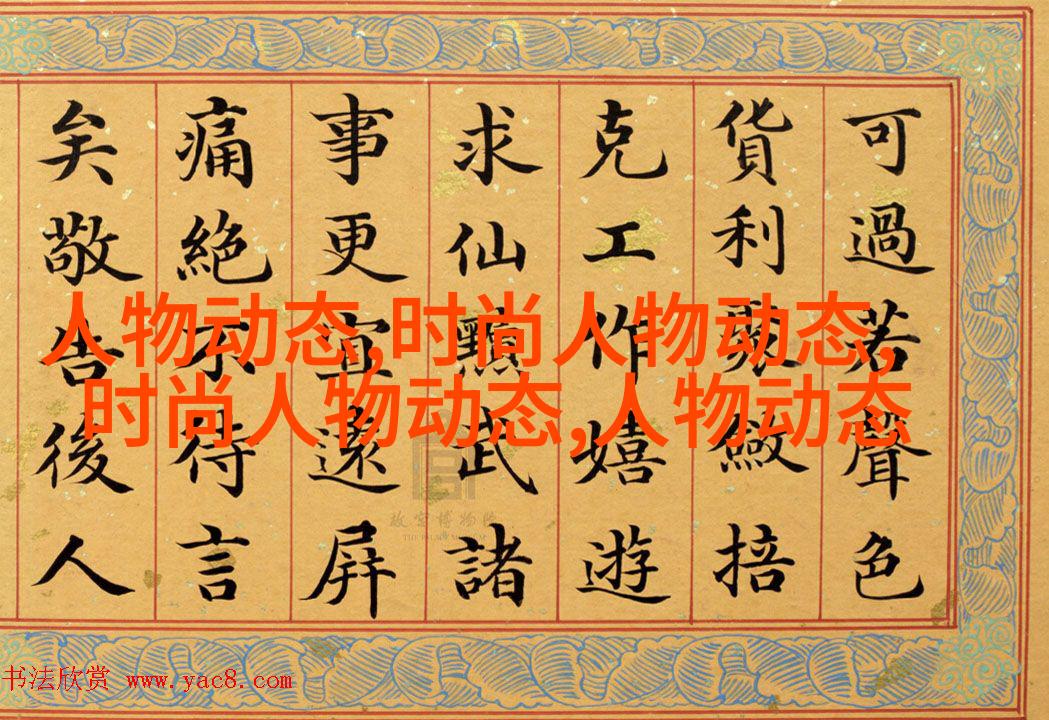 可過若聲色
貨利聚斂掊
克工作嬉遊
求仙黷武諸
事更宜遠屏
痛絕不待言
矣敬告後人
人物动态,时尚人物动态,
时尚人物动态,人物动态
故宫博物院
THE PALACE MUSEUM
书法欣赏 www.yac8.com